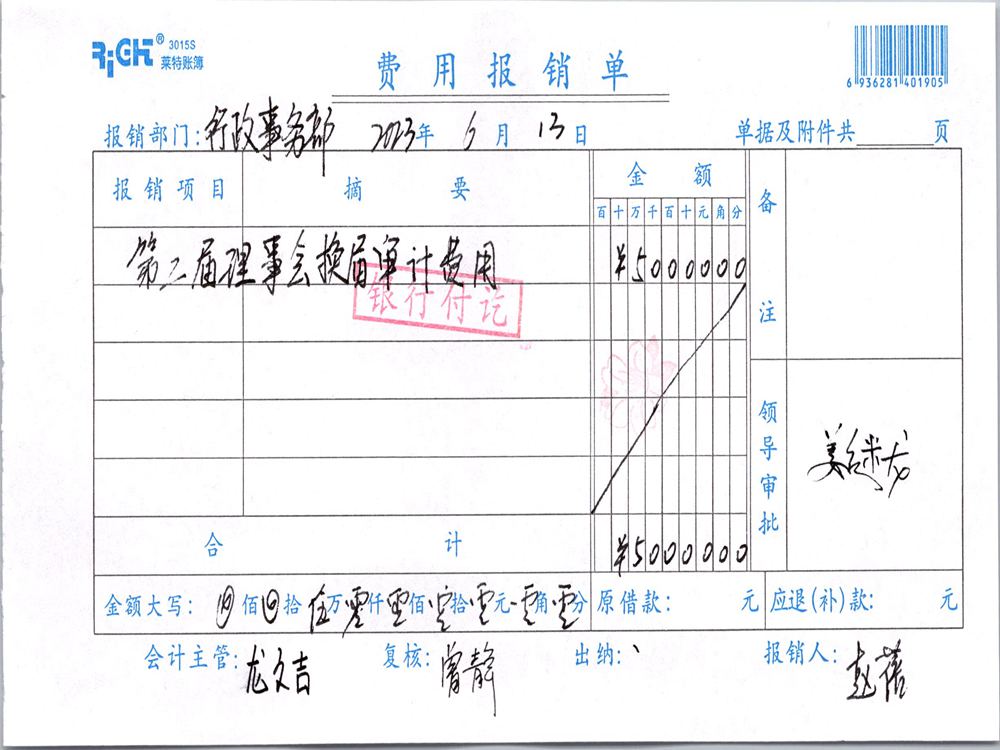 RiGHT® 3015S
莱特账簿
费用报销单
6 936281 401905
报销部门:行政事务部 2023年 6月 13日 单据及附件共 页
报销项目 摘要 金额 备注
百十万千百十元角分
第二届理事会换届审计费用 ¥5000000
银行付讫
领导审批
合计 ¥5000000
金额大写: 佰 拾 伍万零仟零佰零拾零元零角零分 原借款: 元 应退(补)款: 元
会计主管:龙文吉 复核:曾静 出纳: 报销人:赵蓓